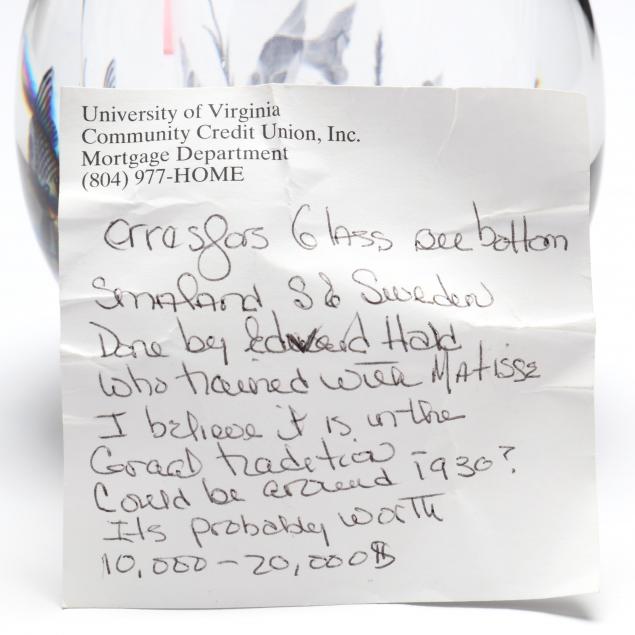 University of Virginia
Community Credit Union, Inc.
Mortgage Department
(804) 977-HOME
Orrasfors Glass see bottom
Smaland S & Sweden
Done by Edward Hald
who trained with Matisse
I believe it is in the
Graal tradition 1930?
Could be around
Its probably worth
10,000 - 20,000$